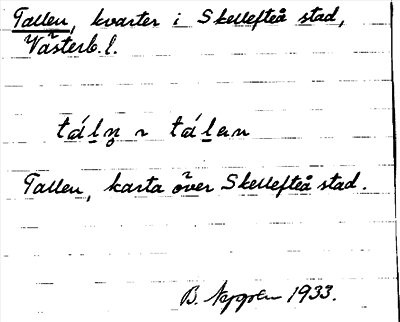 Tallen, kvarter i Skellefteå stad,
Västerb. l.
táln̥ ~ tálen
Tallen, karta över Skellefteå stad.
B. Nygren 1933.